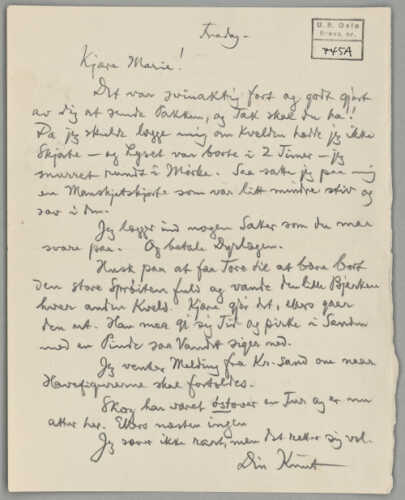 U. B. Oslo
Brevs. nr.
745A
Tirsdag.
Kjære Marie!
Det var svinaktig fort og godt gjort
av dig at sende Pakken, og Tak skal du ha!
Da jeg skulde lægge mig om Kvelden hadde jeg ikke
Skjorte – og Lyset var borte i 2 Timer – jeg
surret rundt i Mörke. Saa satte jeg paa mig
en Manskjetskjorte som var litt mindre stiv og
sov i den.
Jeg lægger ind nogen Saker som du maa
svare paa. Og betale Dyrlægen.
Husk paa at faa Tore til at bære bort
den store Spröiten fuld og vande den lille Bjerken
hver anden Kveld. Kjære gjör det, ellers gaar
den ut. Han maa gi sig Tid og pirke i Sanden
med en Pinde saa Vandet siger ned.
Jeg venter Melding fra Kr.sand om naar
Havefigurerne skal fortolles.
Skog har været östover en Tur og er nu
atter her. Ellers næsten ingen
Jeg sover ikke rart, men det retter sig vel.
Din Knut